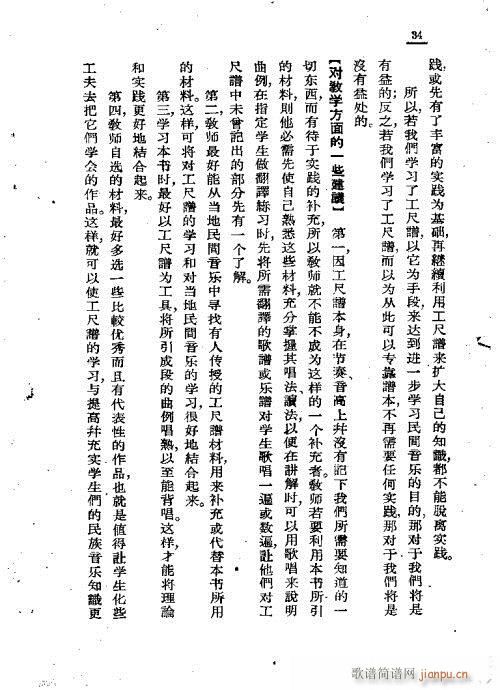 34
践，或先有了丰富的实践为基础再継續利用工尺譜来扩大自己的知識都不能脫离实践。
所以若我們学习了工尺譜，以它为手段，来达到进一步学习民間音乐的目的，那对于我們将是
有益的；反之，若我們学习了工尺譜，而以为从此可以专靠譜本，不再需要任何实践，那对于我們将是
沒有益处的。
【对敎学方面的一些建議】　第一，因工尺譜本身，在节奏、音高上幷沒有記下我們所需要知道的一
切东西，而有待于实践的补充，所以敎师就不能不成为这样的一个补充者。敎师若要利用本书所引
的材料，則他必需先使自己熟悉这些材料，充分掌握其唱法、讀法，以便在講解时，可以用歌唱来說明
曲例，在指定学生做翻譯練习时，先将所需翻譯的歌譜或乐譜对学生歌唱一遍或数遍，让他們对工
尺譜中未曾記出的部分先有一个了解。
第二，敎师最好能从当地民間音乐中寻找有人传授的工尺譜材料，用来补充或代替本书所用
的材料。这样，可将对工尺譜的学习和对当地民間音乐的学习，很好地結合起来。
第三，学习本书时，最好以工尺譜为工具，将所引成段的曲例唱熟，以至能背唱。这样，才能将理論
和实践更好地結合起来。
第四，敎师自选的材料，最好多选一些比較优秀而且有代表性的作品，也就是値得让学生化些
工夫去把它們学会的作品。这样，就可以使工尺譜的学习，与提高幷充实学生們的民族音乐知識更
歌谱简谱网
jianpu.cn